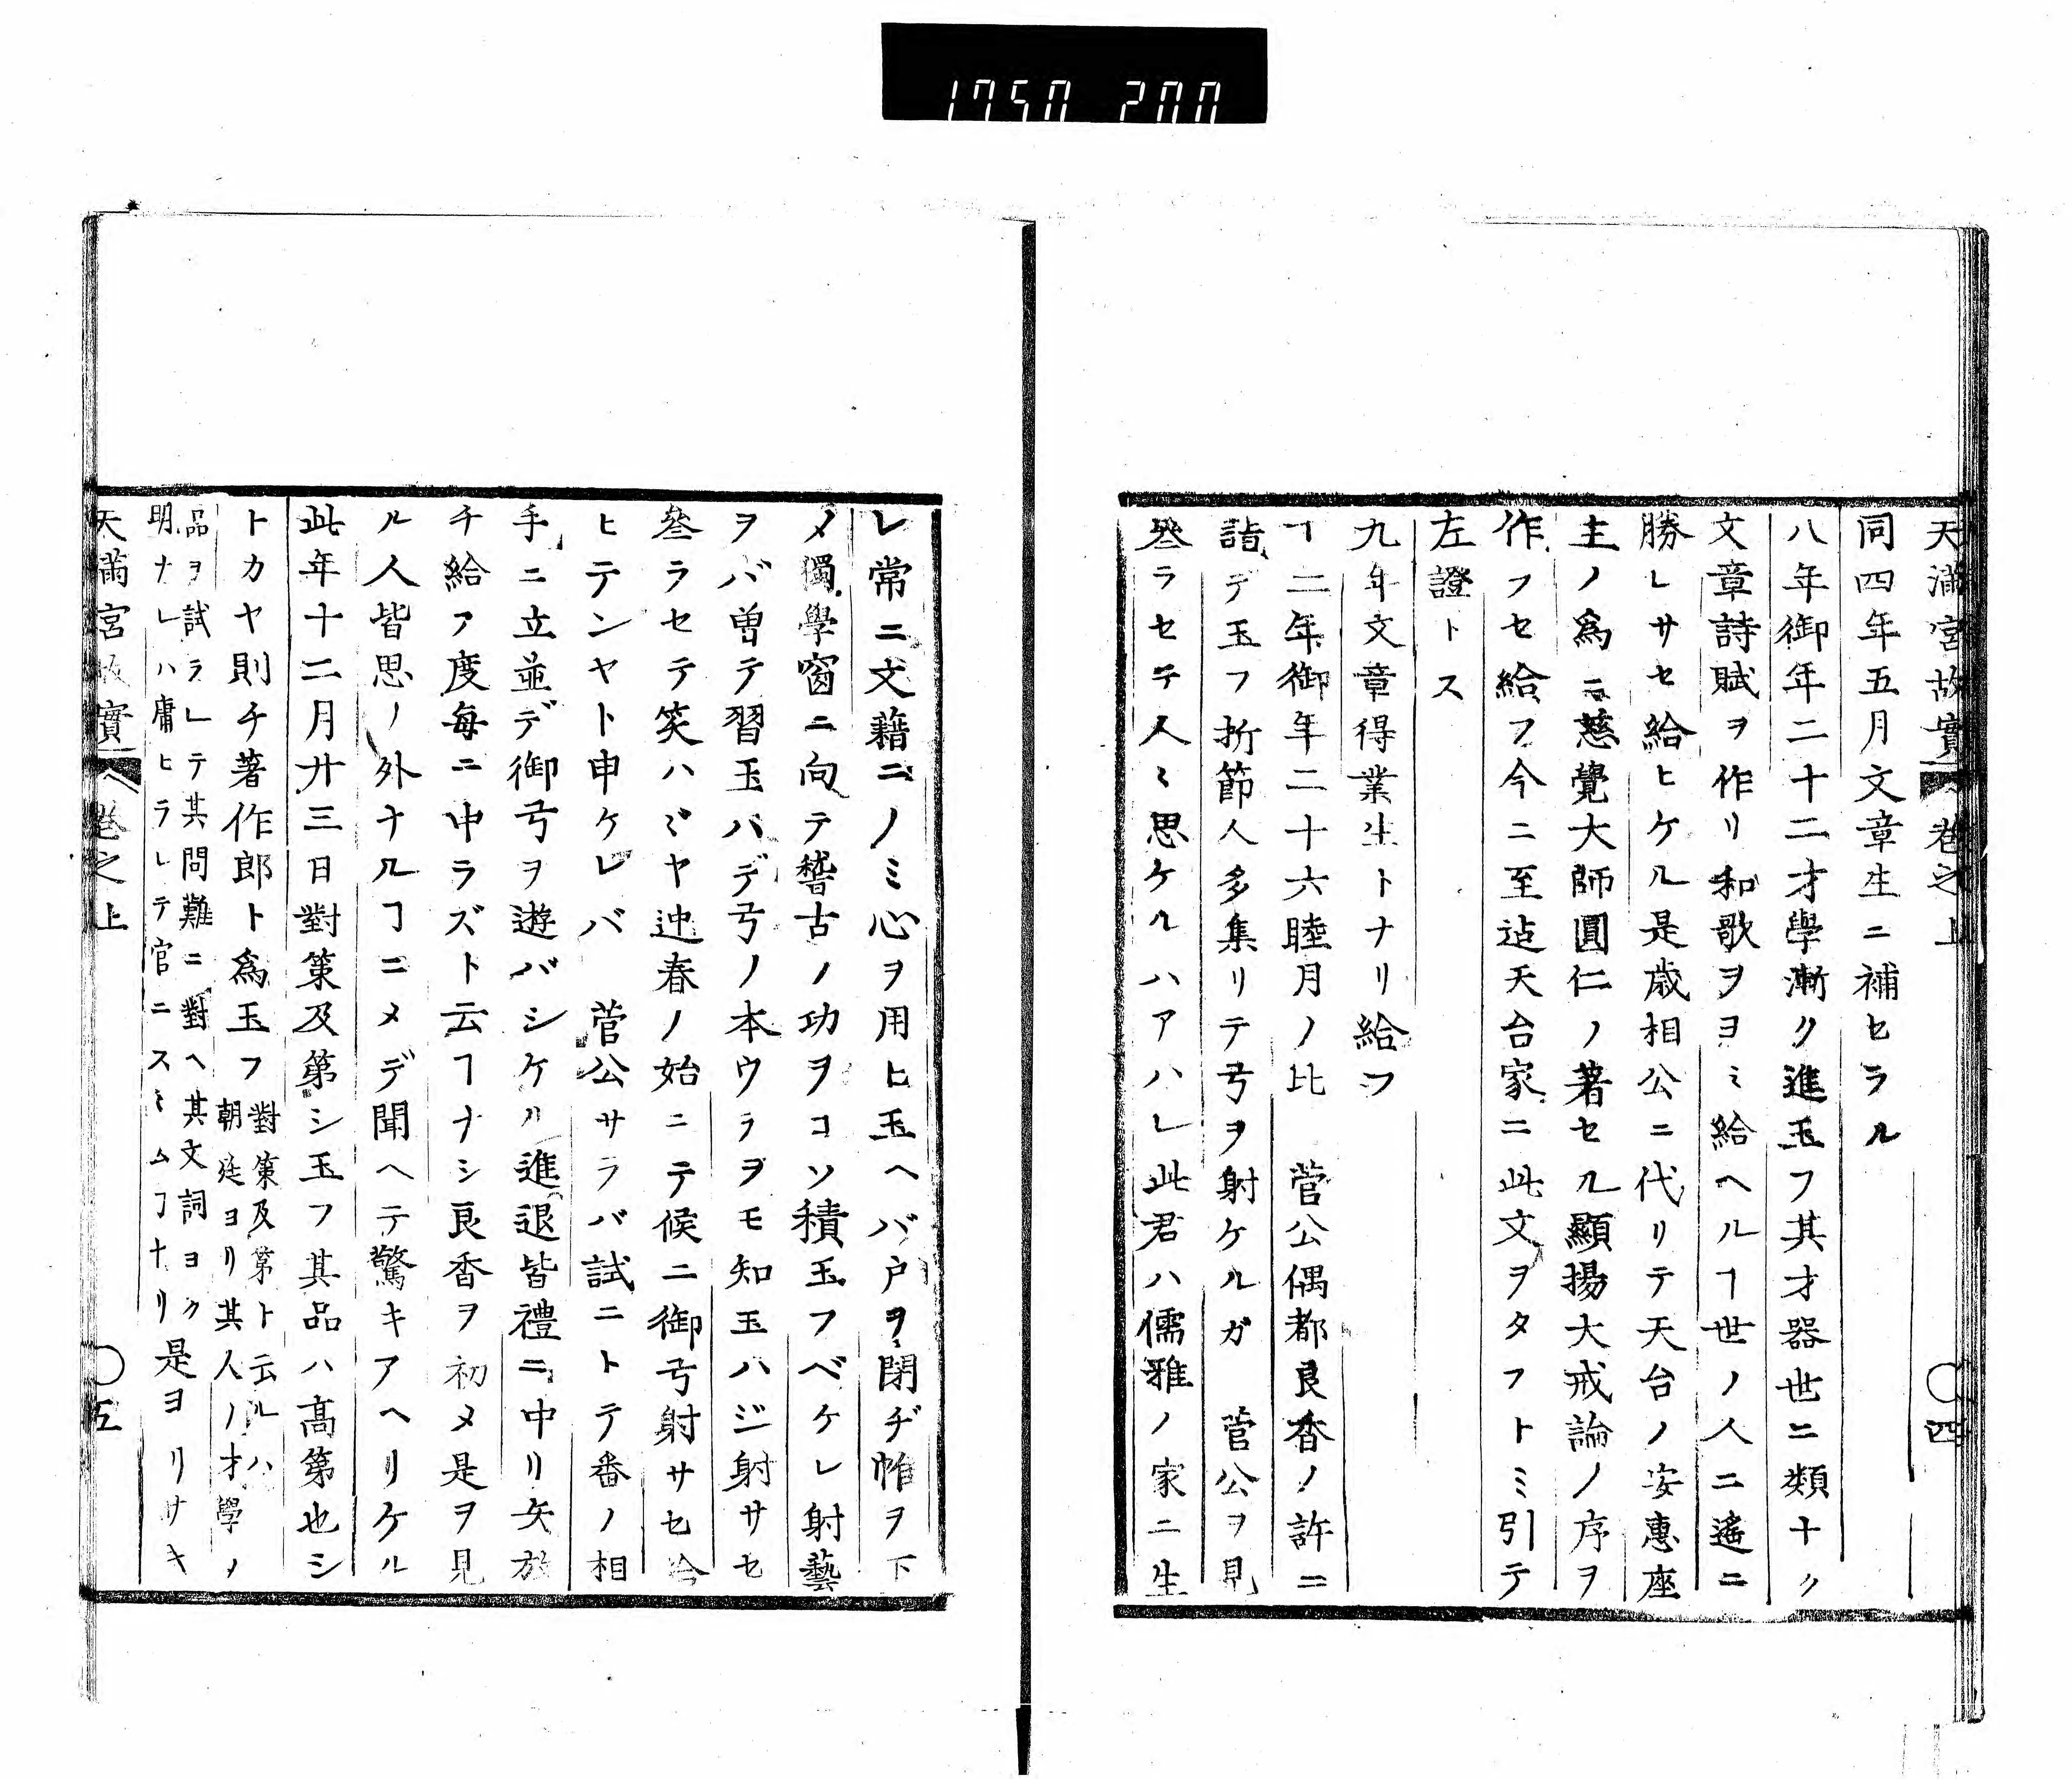 1750 200
天滿宮故實 卷之上 〇四
同四年五月文章生ニ補セラル
八年御年二十二才學漸ク進玉フ其才器世ニ類ナク
文章詩賦ヲ作リ和歌ヲヨミ給ヘルヿ世ノ人ニ遙ニ
勝レサセ給ヒケル是歳相公ニ代リテ天台ノ安惠座
主ノ爲ニ慈覺大師圓仁ノ著セル顯揚大戒論ノ序ヲ
作フセ給フ今ニ至迠天台家ニ此文ヲタフトミ引テ
左證トス
九年文章得業生トナリ給フ
十二年御年二十六睦月ノ比 菅公偶都良香ノ許ニ
詣デ玉フ折節人多集リテ弓ヲ射ケルガ 菅公ヲ見
叅ラセテ人〻思ケルハアハレ此君ハ儒雅ノ家ニ生
レ常ニ文藉ニノミ心ヲ用ヒ玉ヘバ戸ヲ閉ヂ帷ヲ下
メ獨學窗ニ向テ稽古ノ功ヲコソ積玉フベケレ射藝
ヲバ曽テ習玉ハデ弓ノ本ウラヲモ知玉ハジ射サセ
叅ラセテ笑ハヾヤ迚春ノ始ニテ候ニ御弓射サセ給
ヒテンヤト申ケレバ 菅公サラバ試ニトテ番ノ相
手ニ立並デ御弓ヲ遊バシケル進退皆禮ニ中リ矢放
チ給フ度毎ニ中ラズト云ヿナシ良香ヲ初メ是ヲ見
ル人皆思ノ外ナルヿニメデ聞ヘテ驚キアヘリケル
此年十二月廿三日對策及第シ玉フ其品ハ髙第也シ
トカヤ則チ著作郎ト爲玉フ 對策及第ト云ルハ
朝廷ヨリ其人ノ才學ノ
品ヲ試ラレテ其問難ニ對ヘ其文詞ヨク
明ナレハ庸ヒラレテ官ニスヽムヿナリ 是ヨリサキ
天滿宮故實 卷之上 〇五